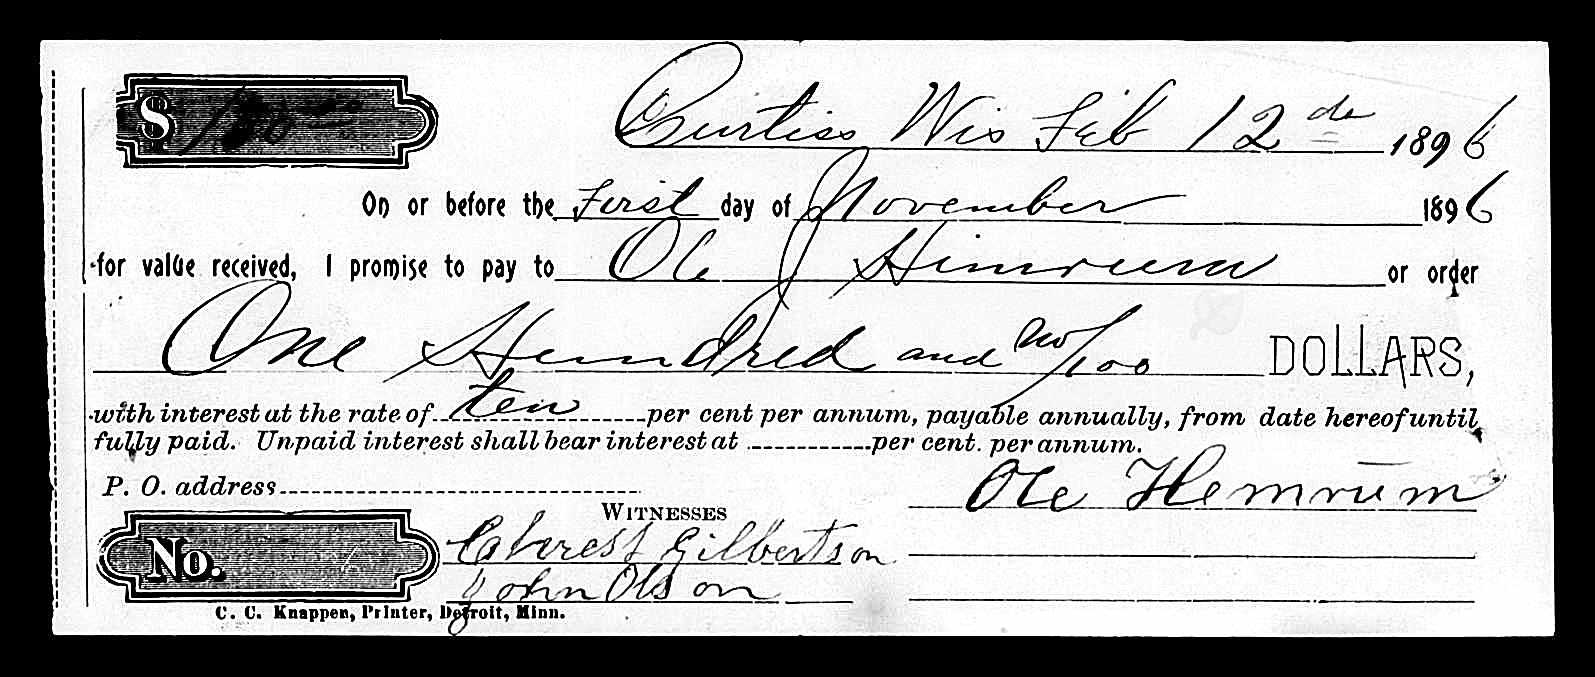 $ 100
Curtiss Wis Feb 12 de 1896
On or before the First day of November 1896
for value received, I promise to pay to Ole J Himrum or order
One Hundred and no/100 DOLLARS,
with interest at the rate of ten per cent per annum, payable annually, from date hereof until
fully paid. Unpaid interest shall bear interest at per cent. per annum.
P. O. address Ole Hemrum
WITNESSES
No. Gilbertson
John Olson
C. C. Knappen, Printer, Detroit, Minn.